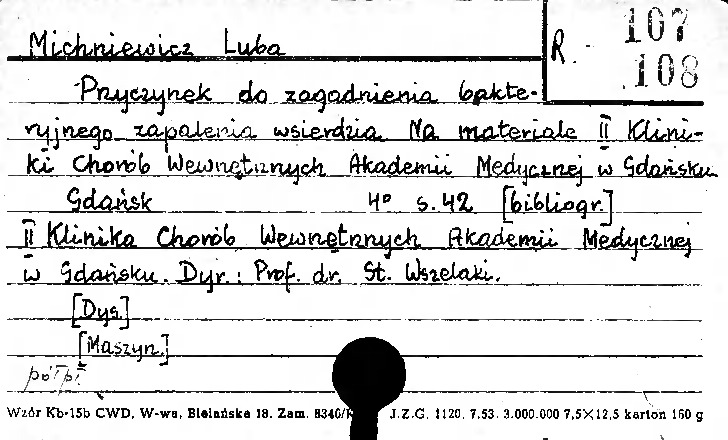 R. - 107
108
Michniewicz Luba
Przyczynek do zagadnienia bakte-
ryjnego zapalenia wsierdzia Na materiale II Klini-
ki Chorób Wewnętrznych Akademii Medycznej w Gdańsku
Gdańsk 4° s. 42 [bibliogr.]
II Klinika Chorób Wewnętrznych Akademii Medycznej
w Gdańsku. Dyr.: Prof. dr. St. Wszelaki.
[Dys.]
[Maszyn.]
półpł
Wzór Kb-15b CWD, W-wa, Bielańska 18. Zam. 8340/ J.Z.G. 1120. 7.53. 3.000.000 7,5×12,5 karton 160 g